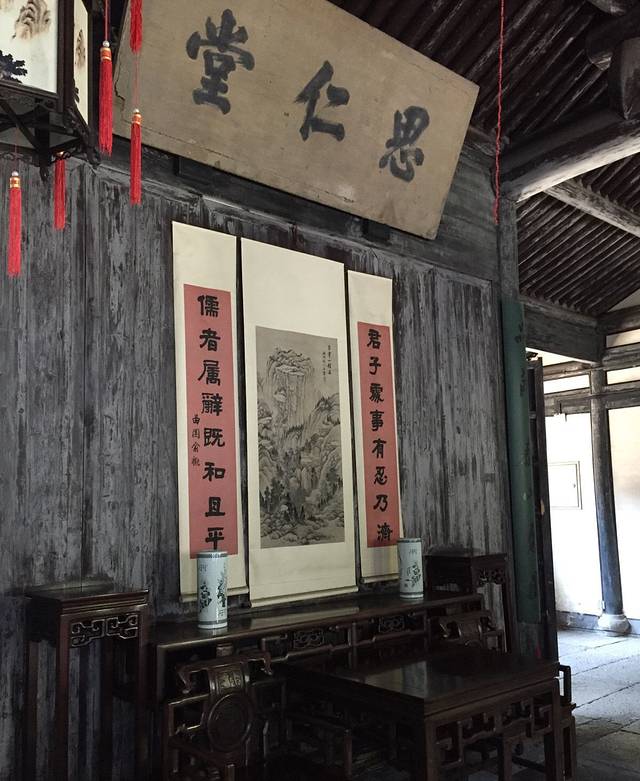 思仁堂
君子處事有忍乃濟
儒者屬辭既和且平
曲園俞樾